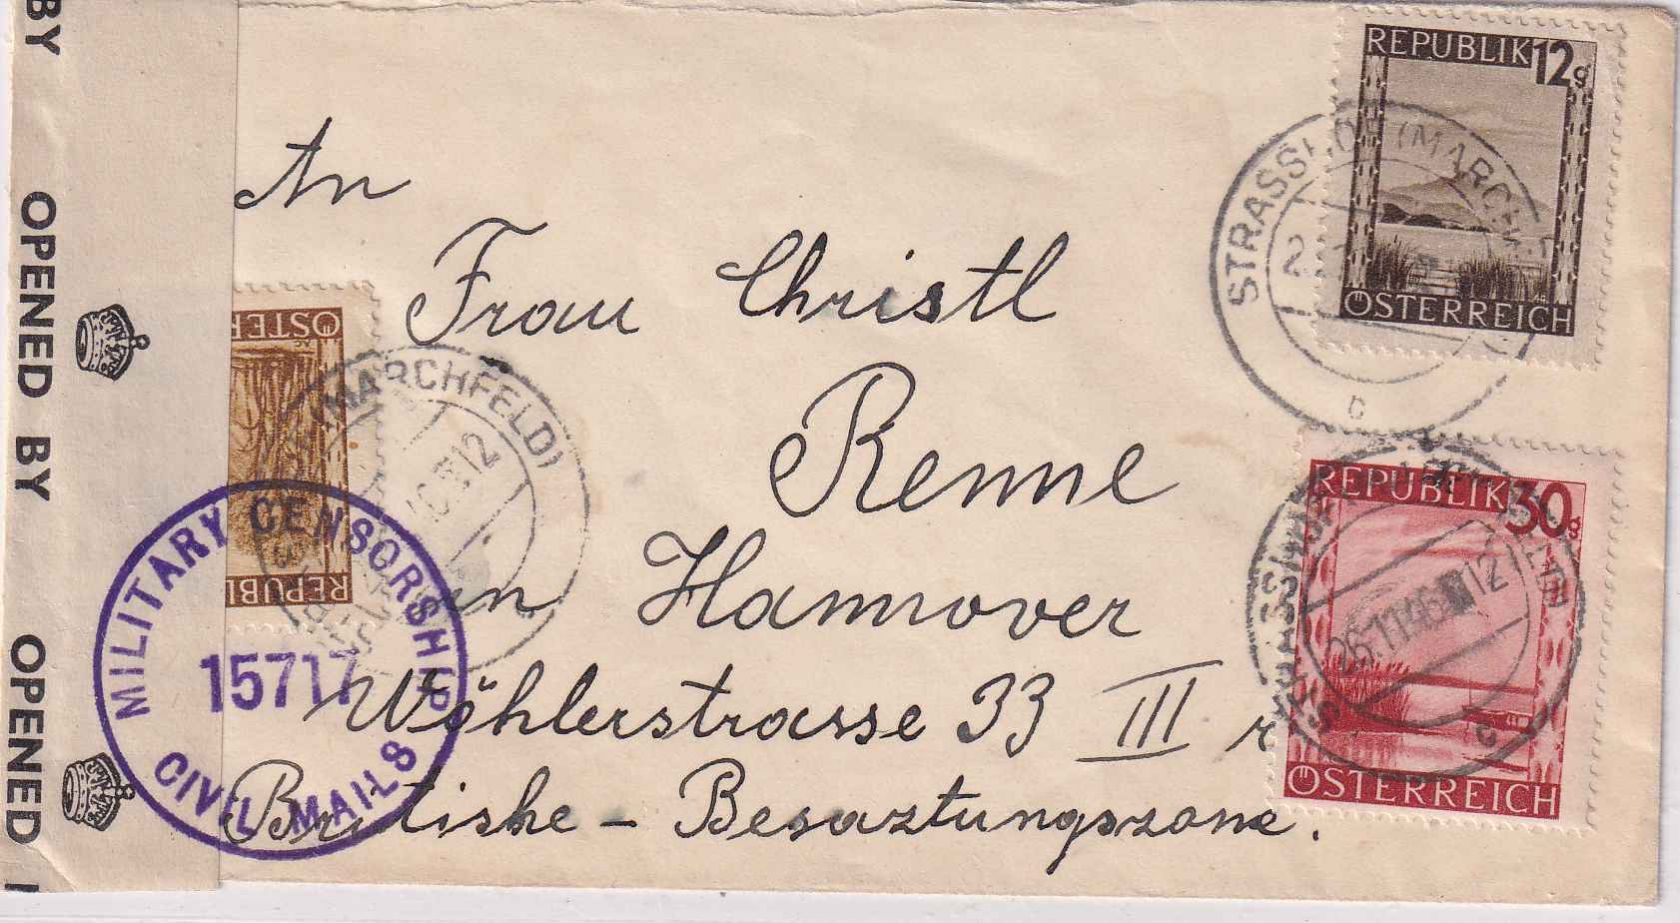 BY
OPENED BY
OPENED
REPUBLIK 12g
ÖSTERREICH
ÖSTER
REPUBL
(MARCHFELD)
12
REPUBLIK 30g
ÖSTERREICH
26.11.46 12
c
b
MILITARY CENSORSHIP
15717
CIVIL MAILS
An
Frau Christl
Renne
in Hannover
Wöhlerstrasse 33 III r
Britishe - Besaztungszone.